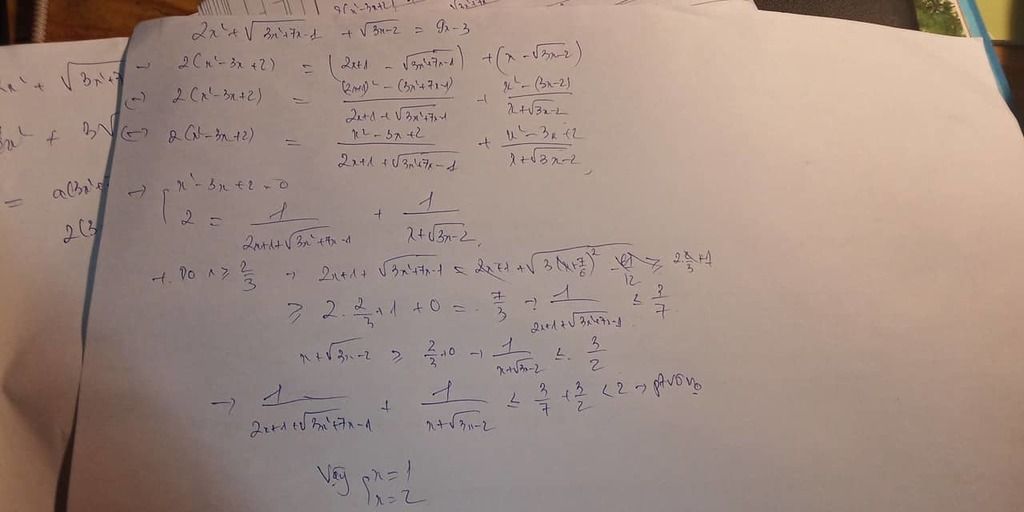 2x² + √3x²+7x-1 + √3x-2 = 9x-3
→ 2(x²-3x+2) = (2x+1 - √3x²+7x-1) + (x - √3x-2)
↔ 2(x²-3x+2) = (2x+1)² - (3x²+7x-1) / 2x+1 + √3x²+7x-1 + x² - (3x-2) / x+√3x-2
↔ 2(x²-3x+2) = x²-3x+2 / 2x+1 + √3x²+7x-1 + x²-3x+2 / x+√3x-2
→ [ x²-3x+2 = 0
2 = 1 / 2x+1+√3x²+7x-1 + 1 / x+√3x-2
+. Do x ≥ 2/3 → 2x+1+ √3x²+7x-1 = 2x+1 + √3(x+7/6)² - 61/12
≥ 2. 2/3 + 1 + 0 = 7/3 → 1 / 2x+1+√3x²+7x-1 ≤ 3/7
x+√3x-2 ≥ 2/3 + 0 → 1 / x+√3x-2 ≤ 3/2
→ 1 / 2x+1+√3x²+7x-1 + 1 / x+√3x-2 ≤ 3/7 + 3/2 < 2 →
Vậy [ x = 1
x = 2